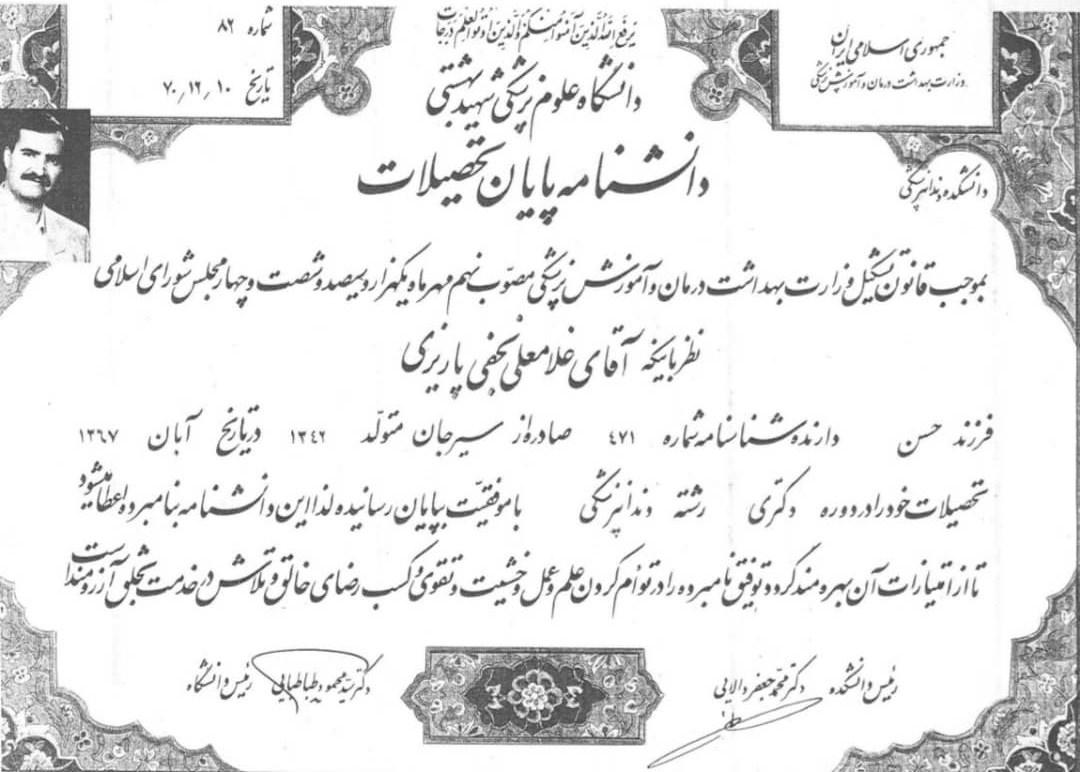 یرفع الله الذین آمنوا منکم والذین اوتوا العلم درجات
جمهوری اسلامی ایران
وزارت بهداشت درمان و آموزش پزشکی
شماره ۸۲
تاریخ ۷۰/۱۲/۱۰
دانشگاه علوم پزشکی شهید بهشتی
دانشنامه پایان تحصیلات
دانشکده دندانپزشکی
بموجب قانون تشکیل وزارت بهداشت درمان و آموزش پزشکی مصوّب نهم مهرماه یکهزار و سیصد و شصت و چهار مجلس شورای اسلامی
نظر باینکه آقای غلامعلی نجفی پاریزی
فرزند حسن دارنده شناسنامه شماره ۴۷۱ صادره از سیرجان متولّد ۱۳۴۲ در تاریخ آبان ۱۳۶۷
تحصیلات خود را در دوره دکتری رشته دندانپزشکی با موفقیّت بپایان رسانیده لذا این دانشنامه بنامبرده اعطا میشود
تا از امتیازات آن بهره‌مند گردد توفیق نامبرده را در توأم کردن علم و عمل و خشیت و تقوی و کسب رضای خالق و تلاش در خدمت بخلق آرزومند است
رئیس دانشکده دکتر محمد جعفر دالایی
دکتر سید محمود طباطبایی رئیس دانشگاه